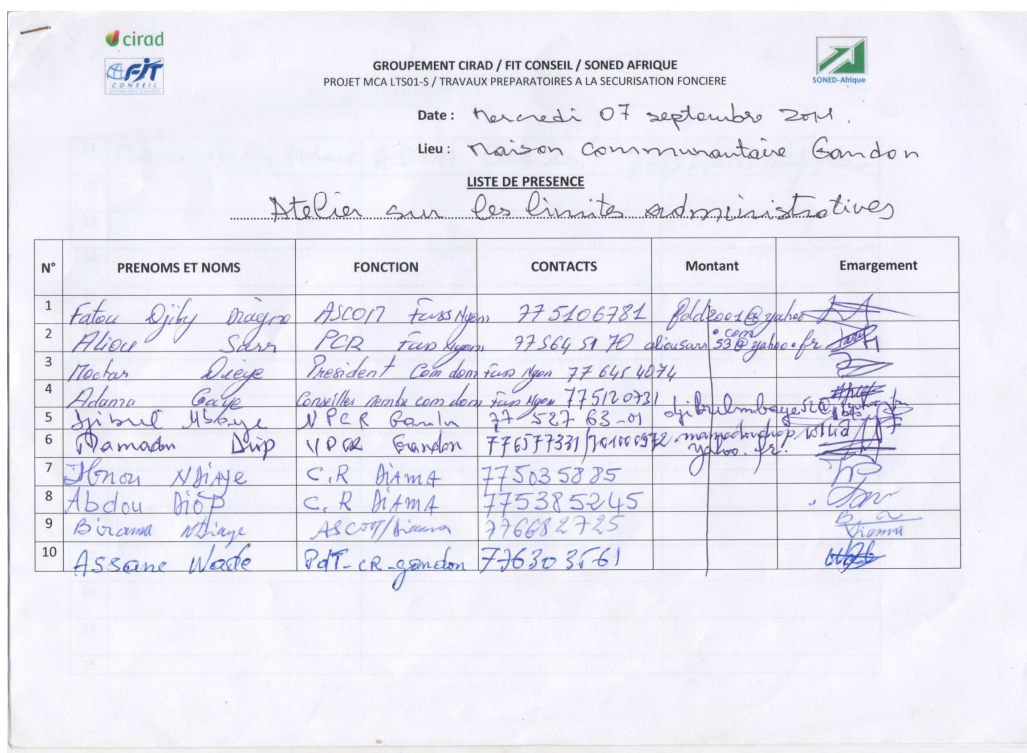 cirad
FIT
CONSEIL
SONED-Afrique
GROUPEMENT CIRAD / FIT CONSEIL / SONED AFRIQUE
PROJET MCA LTS01-S / TRAVAUX PREPARATOIRES A LA SECURISATION FONCIERE
Date : Mercredi 07 septembre 2011.
Lieu : Maison Communautaire Gandon
LISTE DE PRESENCE
Atelier sur les limites administratives
N° PRENOMS ET NOMS FONCTION CONTACTS Montant Emargement
1 Fatou Djiby Diagne ASCOM Fass Ngom 775106781
2 Alioune Sarr PCR Fass Ngom 77564 51 70 aliousarr53@yahoo.fr
3 Moctar Dieye President Com dom Fass Ngom
4 Adama Gaye Conseiller membre com dom Fass Ngom 775120731
5 Djibril Mbaye VPCR Gandon 77 527 63-01
6 Mamadou Diop VPCR Gandon 776577331 yahoo.fr.
7 NDIAYE C.R DIAMA 775035885
8 Abdou DIOP C.R DIAMA 775385245
9 Birama Ndiaye ASCOM/Diama 776682725
10 Assane Wade PdT-CR-gandon 776303561